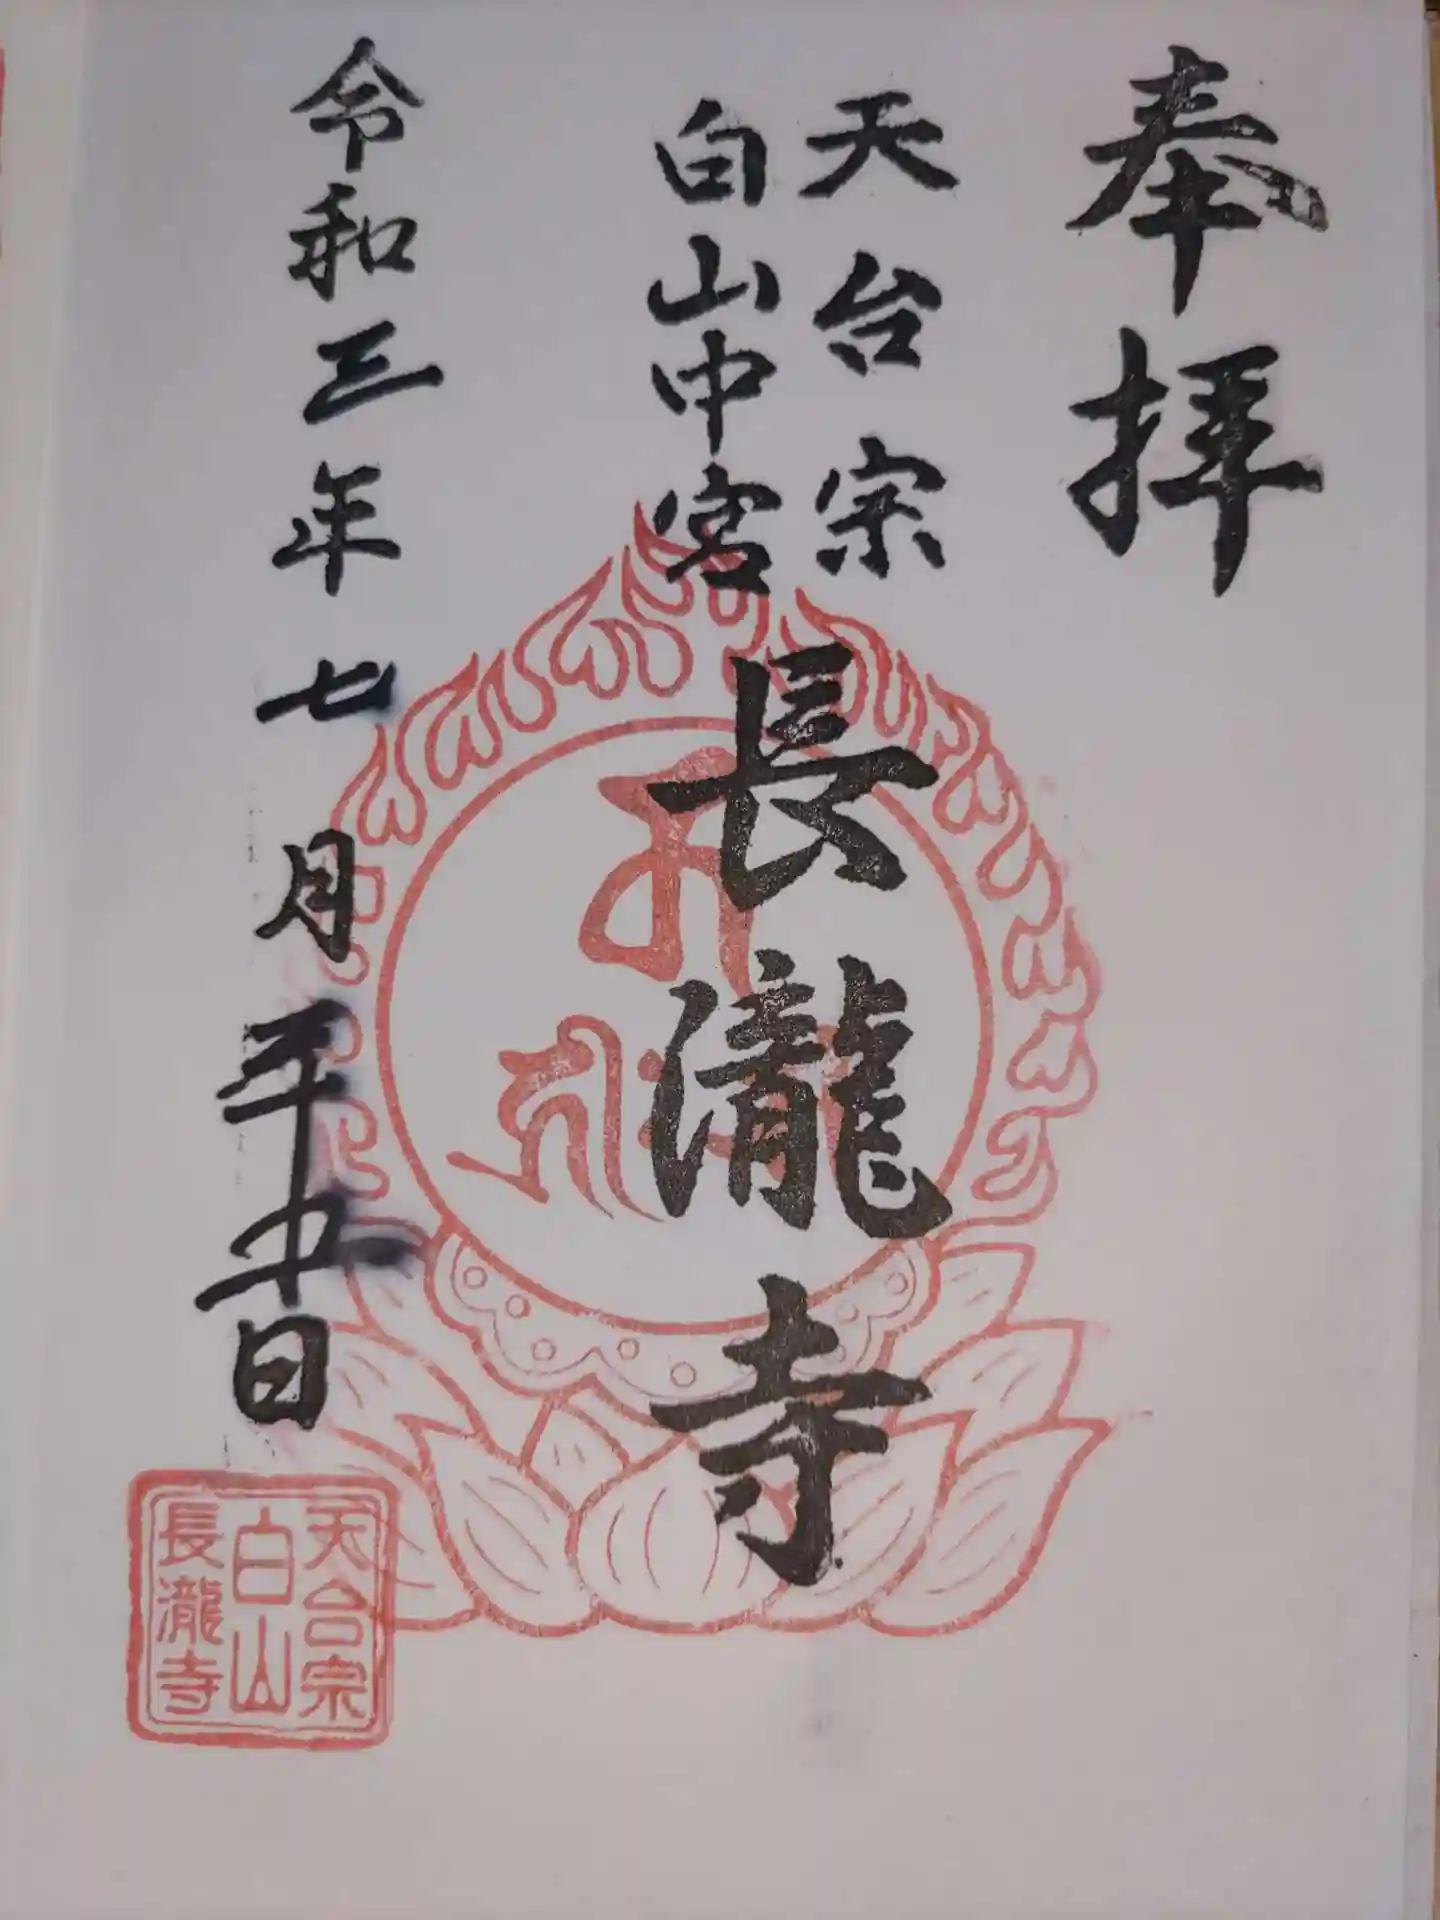 奉拝
天台宗
白山中宮
長瀧寺
令和三年七月 日
天台宗
白山
長瀧寺